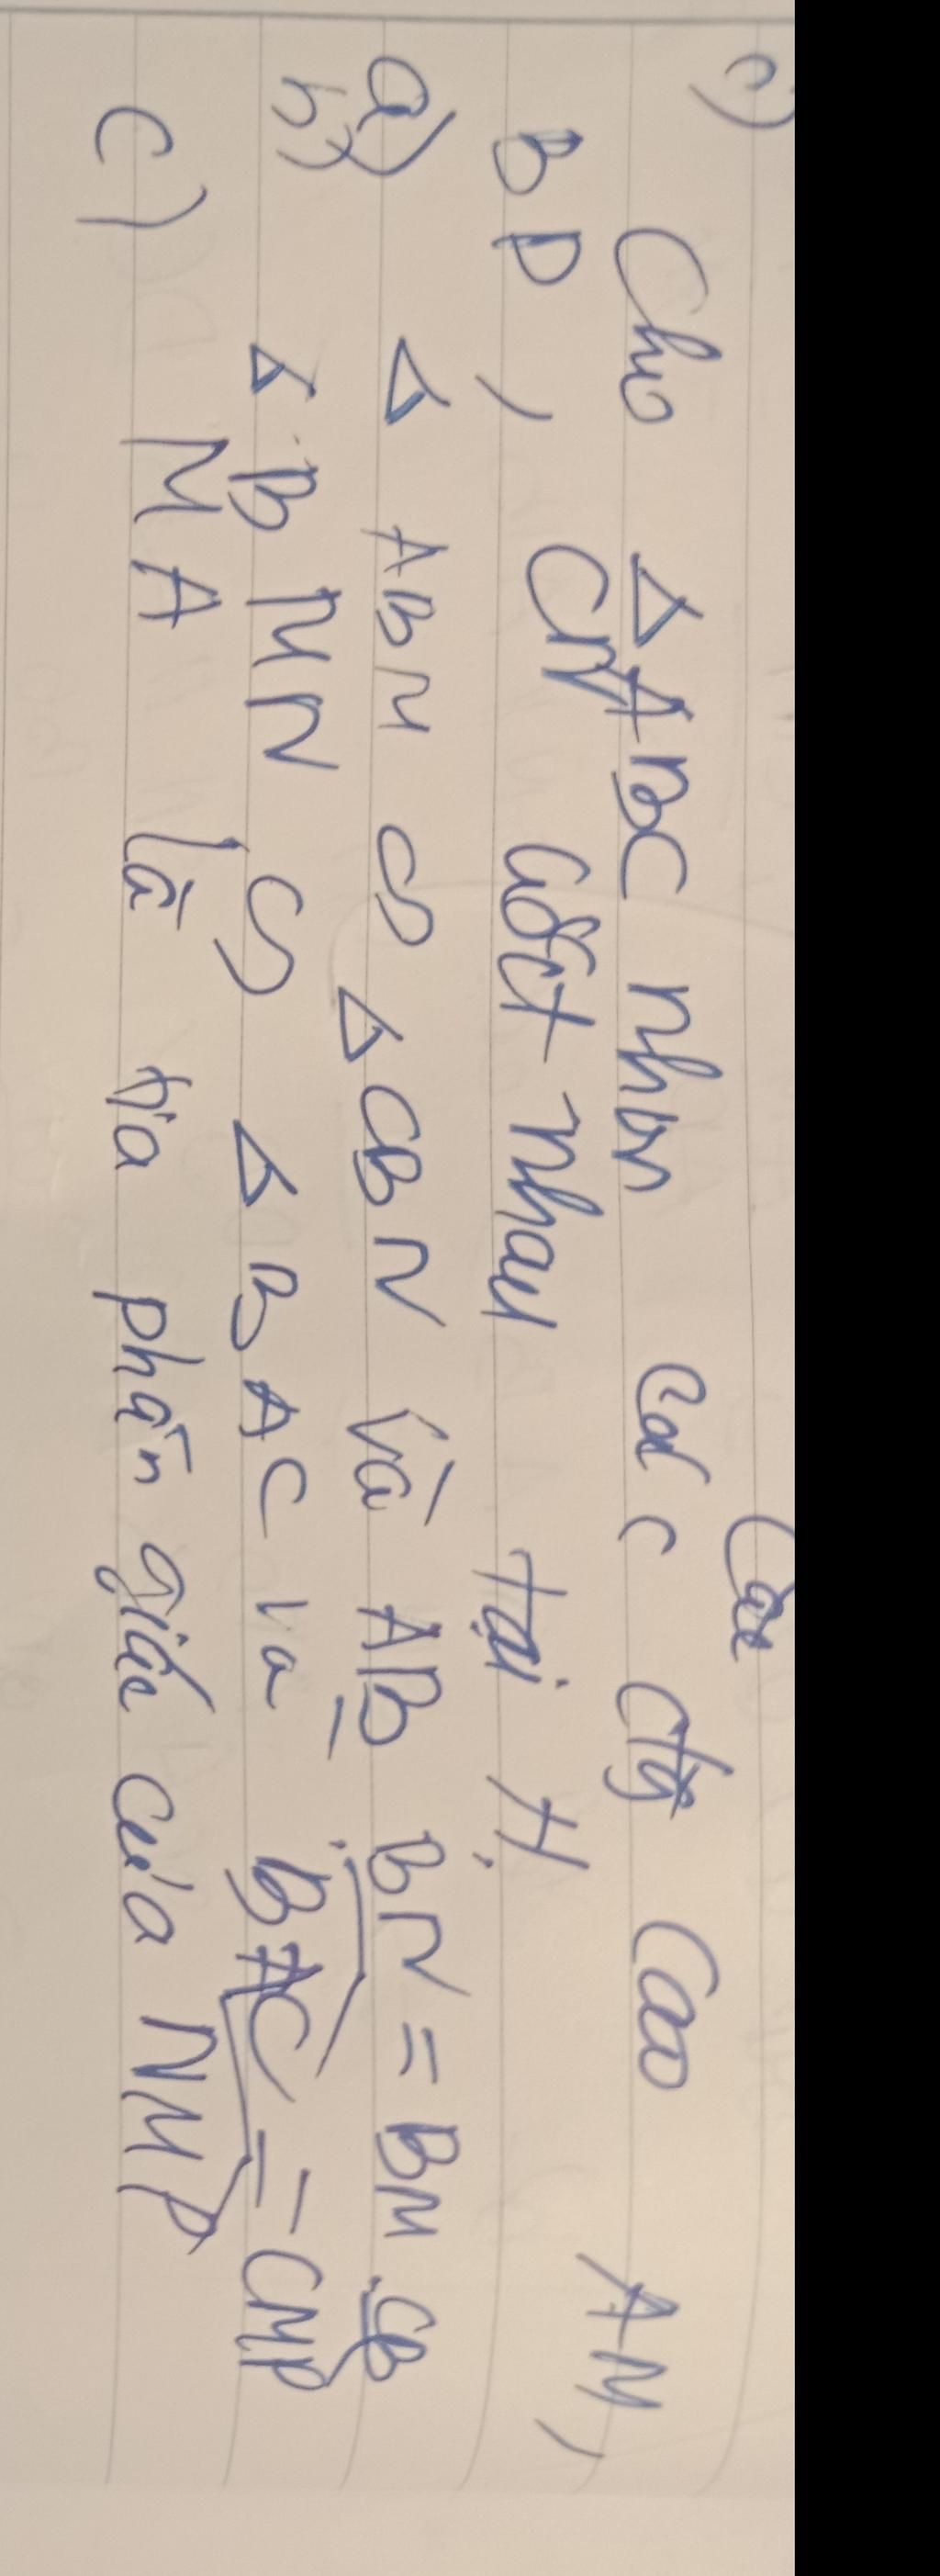 Các
Cho ΔABC nhọn các đg cao AM,
BP, CN cắt nhau tại H.
a) Δ ABM ∽ Δ CBN và AB.BN = BM.CB
b) Δ BMN ∽ Δ BAC và BAC = CMP
c) MA là tia phân giác của NMP